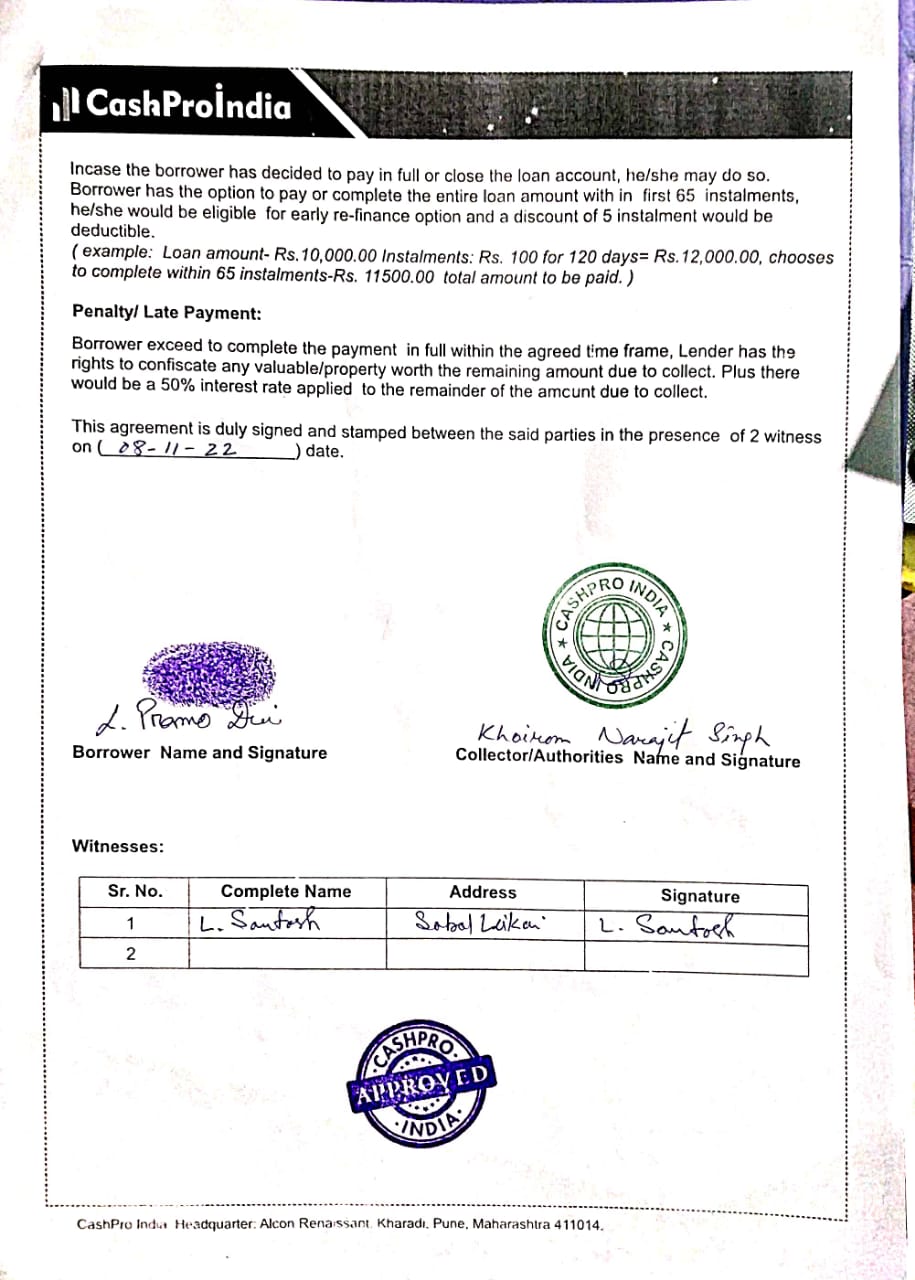 CashProIndia
Incase the borrower has decided to pay in full or close the loan account, he/she may do so.
Borrower has the option to pay or complete the entire loan amount with in first 65 instalments,
he/she would be eligible for early re-finance option and a discount of 5 instalment would be
deductible.
( example: Loan amount- Rs.10,000.00 Instalments: Rs. 100 for 120 days= Rs.12,000.00, chooses
to complete within 65 instalments-Rs. 11500.00 total amount to be paid. )
Penalty/ Late Payment:
Borrower exceed to complete the payment in full within the agreed time frame, Lender has the
rights to confiscate any valuable/property worth the remaining amount due to collect. Plus there
would be a 50% interest rate applied to the remainder of the amount due to collect.
This agreement is duly signed and stamped between the said parties in the presence of 2 witness
on ( 08-11-22 ) date.
CASHPRO INDIA ★ CASHPRO INDIA ★
L. Pramo Devi
Khoirom Narajit Singh
Borrower Name and Signature
Collector/Authorities Name and Signature
Witnesses:
Sr. No. Complete Name Address Signature
1 L. Santosh Sabal Leikai L. Santosh
2
CASHPRO
APPROVED
INDIA
CashPro India Headquarter: Alcon Renaissant. Kharadi, Pune, Maharashtra 411014.